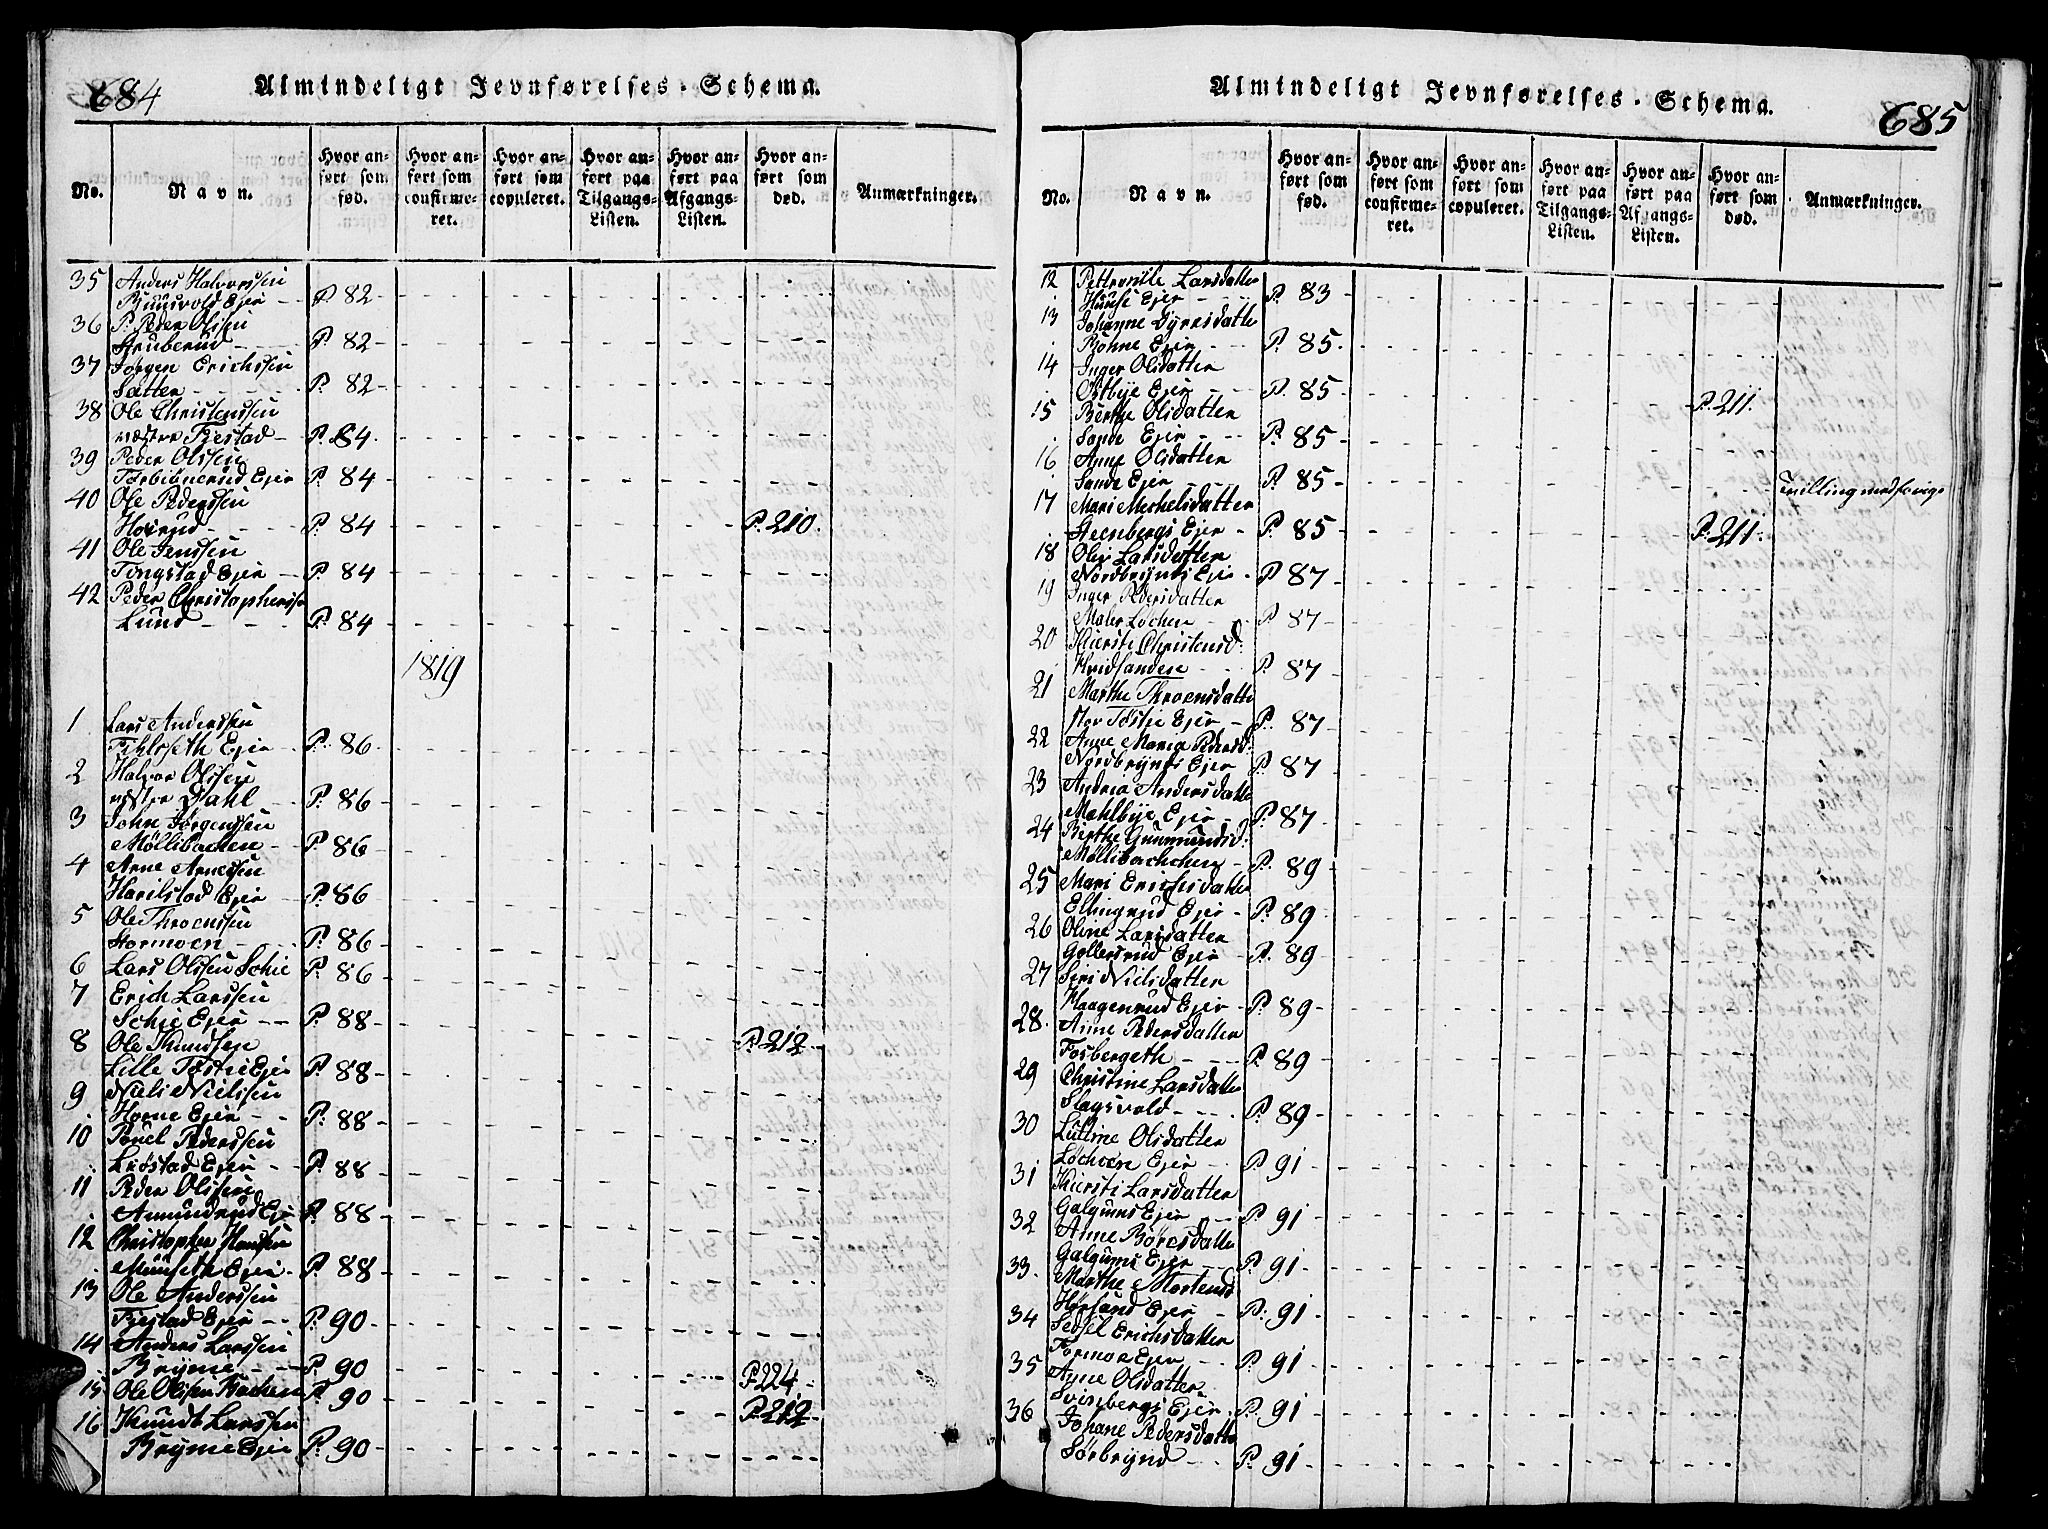 684
Almindeligt Jevnførelses-Schema.
No.
Navn.
Hvor anført som fød.
Hvor anført som confirmeret.
Hvor anført som copuleret.
Hvor anført paa Tilgangs-Listen.
Hvor anført paa Afgangs-Listen.
Hvor anført som død.
Anmærkninger.
35 Anders Halvorssen
Ejer P. 82
36 P. Peder Olssen
Struberud P. 82
37 Jørgen Erichssen
Sætter P. 82
38 Ole Christenssen
væstre Fjestad P. 84
39 Peder Olssen
Torbiønerud Ejer P. 84
40 Ole Pederssen
P. 84 P. 210.
41 Ole Jenssen
Tingstad Ejer P. 84
42 Peder Christopherssen
Lund P. 84
1819
1 Lars Anderssen
Ejer P. 86
2 Halvor Olssen
væstre Dahl P. 86
3 John Jørgenssen
Møllibachen P. 86
4 Arne Arnessen
Harilstad Ejer P. 86
5 Ole Throenssen
Stormoen P. 86
6 Lars Olssen Schie P. 86
7 Erich Larssen
Schie Ejer P. 88
8 Ole Knudsen P. 212
Lille Tøstie Ejer P. 88
9 Niels Nielssen
Horne Ejer P. 88
10 Povel Pederssen
Ejer P. 88
11 Peder Olssen
Amundrud Ejer P. 88
12 Christopher Hanssen
Ejer P. 88
13 Ole Anderssen
Fjestad Ejer P. 90
14 Anders Larssen
Bryne P. 90 P. 224
15 Ole Olssen Bachen P. 90 P. 212
16 Knudt Larssen
Bryne Ejer P. 90
Almindeligt Jevnførelses-Schema.
685
No.
Navn.
Hvor anført som fød.
Hvor anført som confirmeret.
Hvor anført som copuleret.
Hvor anført paa Tilgangs-Listen.
Hvor anført paa Afgangs-Listen.
Hvor anført som død.
Anmærkninger.
12 Petternille Larsdatter
Ejer P. 83
13 Johanne Gyresdatter
Bøhne Ejer P. 85
14 Inger Olsdatter
Østbye Ejer P. 85 P. 211.
15 Berthe Olsdatter
Sande Ejer P. 85
16 Anne Olsdatter
Sande Ejer P. 85 Tvilling med forige
17 Mari Mechelsdatter
Steensbergs Ejer P. 85 P. 211.
18 Olea Larsdatter
Nordbrynds Ejer P. 87
19 Inger Pedersdatter
Maler Løchen P. 87
20 Kiersti Christensd.
Hvidsandene P. 87
21 Marthe Throensdatter
Stor Tøstie Ejer P. 87
22 Anne Maria Pedersd.
Nordbrynds Ejer P. 87
23 Andrea Andersdatter
Mæhlbye Ejer P. 87
24 Berthe Gunmundsd.
Møllibachchen P. 89
25 Mari Erichsdatter
Ellingrud Ejer P. 89
26 Oline Larsdatter
Gollersrud Ejer P. 89
27 Siri Nielsdatter
Haagenrud Ejer P. 89
28 Anne Pedersdatter
Fosbergeth P. 89
29 Christine Larsdatter
Slagsvold P. 89
30 Lüttine Olsdatter
Løchoen Ejer P. 91
31 Kiersti Larsdatter
Galguns Ejer P. 91
32 Anne Børesdatter
Galguns Ejer P. 91
33 Marthe Mortensd
Hørsand Ejer P. 91
34 Sidsel Erichsdatter
Formoe Ejer P. 91
35 Anne Olsdatter
Svisbergs Ejer P. 91
36 Johane Pedersdatter
Sørbrynd P. 91